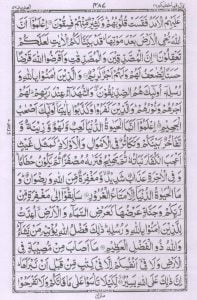 عَلَيْهِمُ الْاَمَدُ فَقَسَتْ قُلُوْبُهُمْ وَكَثِيْرٌ مِّنْهُمْ فٰسِقُوْنَ اِعْلَمُوْٓا اَنَّ
اللّٰهَ يُحْيِ الْاَرْضَ بَعْدَ مَوْتِهَا قَدْ بَيَّنَّا لَكُمُ الْاٰيٰتِ لَعَلَّكُمْ
تَعْقِلُوْنَ اِنَّ الْمُصَّدِّقِيْنَ وَالْمُصَّدِّقٰتِ وَاَقْرَضُوا اللّٰهَ قَرْضًا
حَسَنًا يُّضٰعَفُ لَهُمْ وَلَهُمْ اَجْرٌ كَرِيْمٌ وَالَّذِيْنَ اٰمَنُوْا بِاللّٰهِ وَ
رُسُلِهٖٓ اُولٰٓئِكَ هُمُ الصِّدِّيْقُوْنَ وَالشُّهَدَآءُ عِنْدَ رَبِّهِمْ لَهُمْ
اَجْرُهُمْ وَنُوْرُهُمْ وَالَّذِيْنَ كَفَرُوْا وَكَذَّبُوْا بِاٰيٰتِنَآ اُولٰٓئِكَ اَصْحٰبُ
الْجَحِيْمِ اِعْلَمُوْٓا اَنَّمَا الْحَيٰوةُ الدُّنْيَا لَعِبٌ وَّلَهْوٌ وَّزِيْنَةٌ وَّ
تَفَاخُرٌۢ بَيْنَكُمْ وَتَكَاثُرٌ فِي الْاَمْوَالِ وَالْاَوْلَادِ كَمَثَلِ غَيْثٍ
اَعْجَبَ الْكُفَّارَ نَبَاتُهٗ ثُمَّ يَهِيْجُ فَتَرٰىهُ مُصْفَرًّا ثُمَّ يَكُوْنُ حُطَامًا
وَفِي الْاٰخِرَةِ عَذَابٌ شَدِيْدٌ وَّمَغْفِرَةٌ مِّنَ اللّٰهِ وَرِضْوَانٌ وَ
مَا الْحَيٰوةُ الدُّنْيَآ اِلَّا مَتَاعُ الْغُرُوْرِ سَابِقُوْٓا اِلٰى مَغْفِرَةٍ مِّنْ
رَّبِّكُمْ وَجَنَّةٍ عَرْضُهَا كَعَرْضِ السَّمَآءِ وَالْاَرْضِ اُعِدَّتْ
لِلَّذِيْنَ اٰمَنُوْا بِاللّٰهِ وَرُسُلِهٖ ذٰلِكَ فَضْلُ اللّٰهِ يُؤْتِيْهِ مَنْ يَّشَآءُ
وَاللّٰهُ ذُو الْفَضْلِ الْعَظِيْمِ مَآ اَصَابَ مِنْ مُّصِيْبَةٍ فِي
الْاَرْضِ وَلَا فِيْٓ اَنْفُسِكُمْ اِلَّا فِيْ كِتٰبٍ مِّنْ قَبْلِ اَنْ نَّبْرَاَهَا
اِنَّ ذٰلِكَ عَلَى اللّٰهِ يَسِيْرٌ لِّكَيْلَا تَاْسَوْا عَلٰى مَا فَاتَكُمْ وَلَا تَفْرَحُوْا